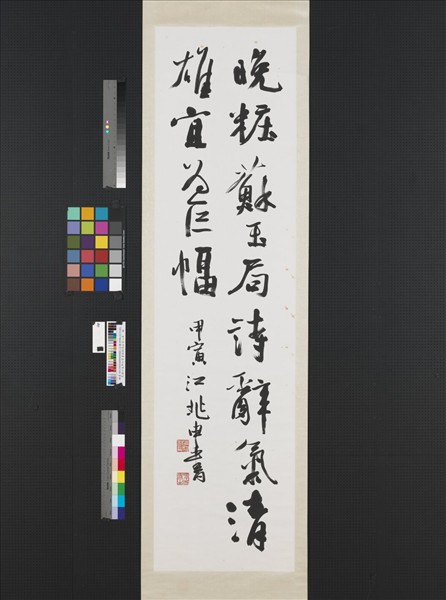 晚粧蘇玉局詩辭氣清
雄宜為巨幅
甲寅江兆申